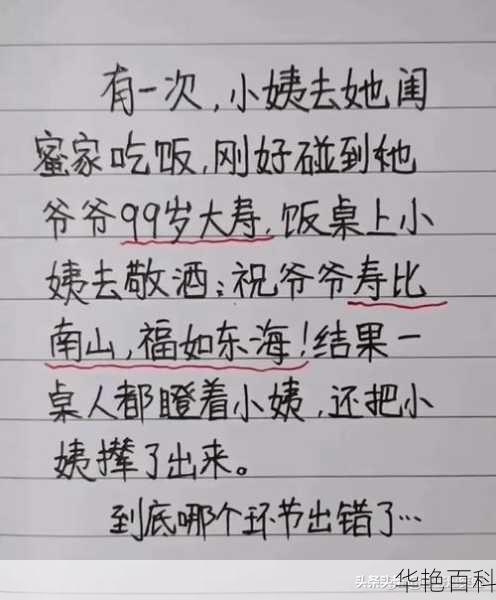 有一次,小姨去她闺
蜜家吃饭,刚好碰到她
爷爷99岁大寿,饭桌上小
姨去敬酒:祝爷爷寿比
南山,福如东海!结果一
桌人都瞪着小姨,还把小
姨撵了出来。
到底哪个环节出错了…
华艳百科